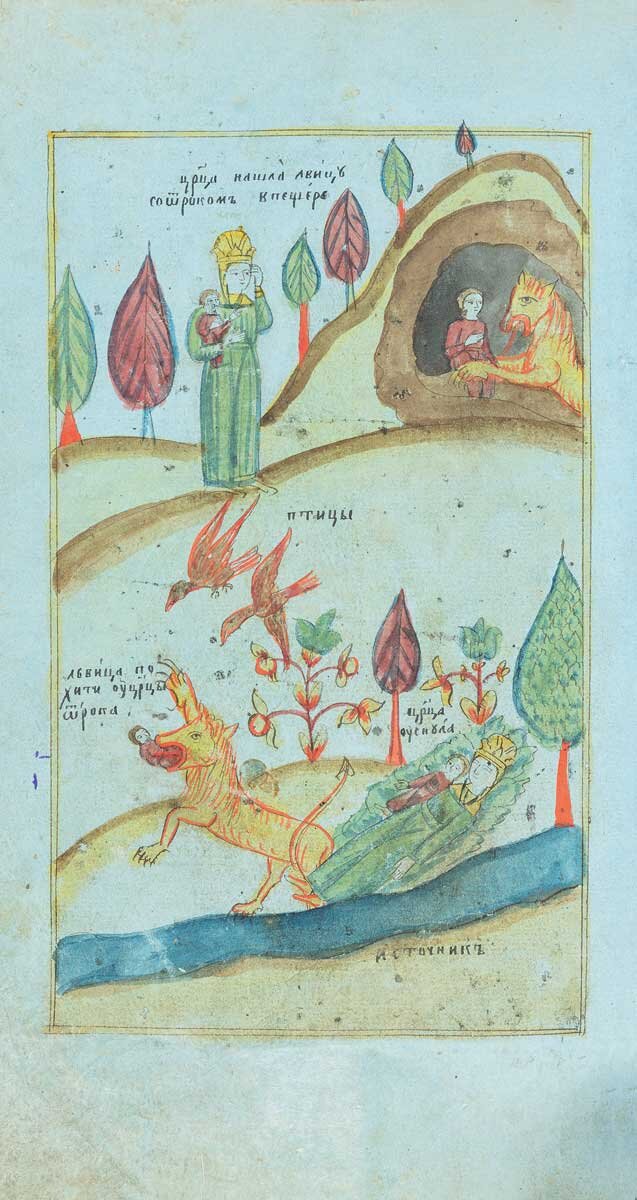 црц҃а нашла̀ лви́цꙋ
со ѿрокомъ в пещере
птицы
лвви́ца по
хити оу црцы
ѿрока
црц҃а
оуснула
источникъ